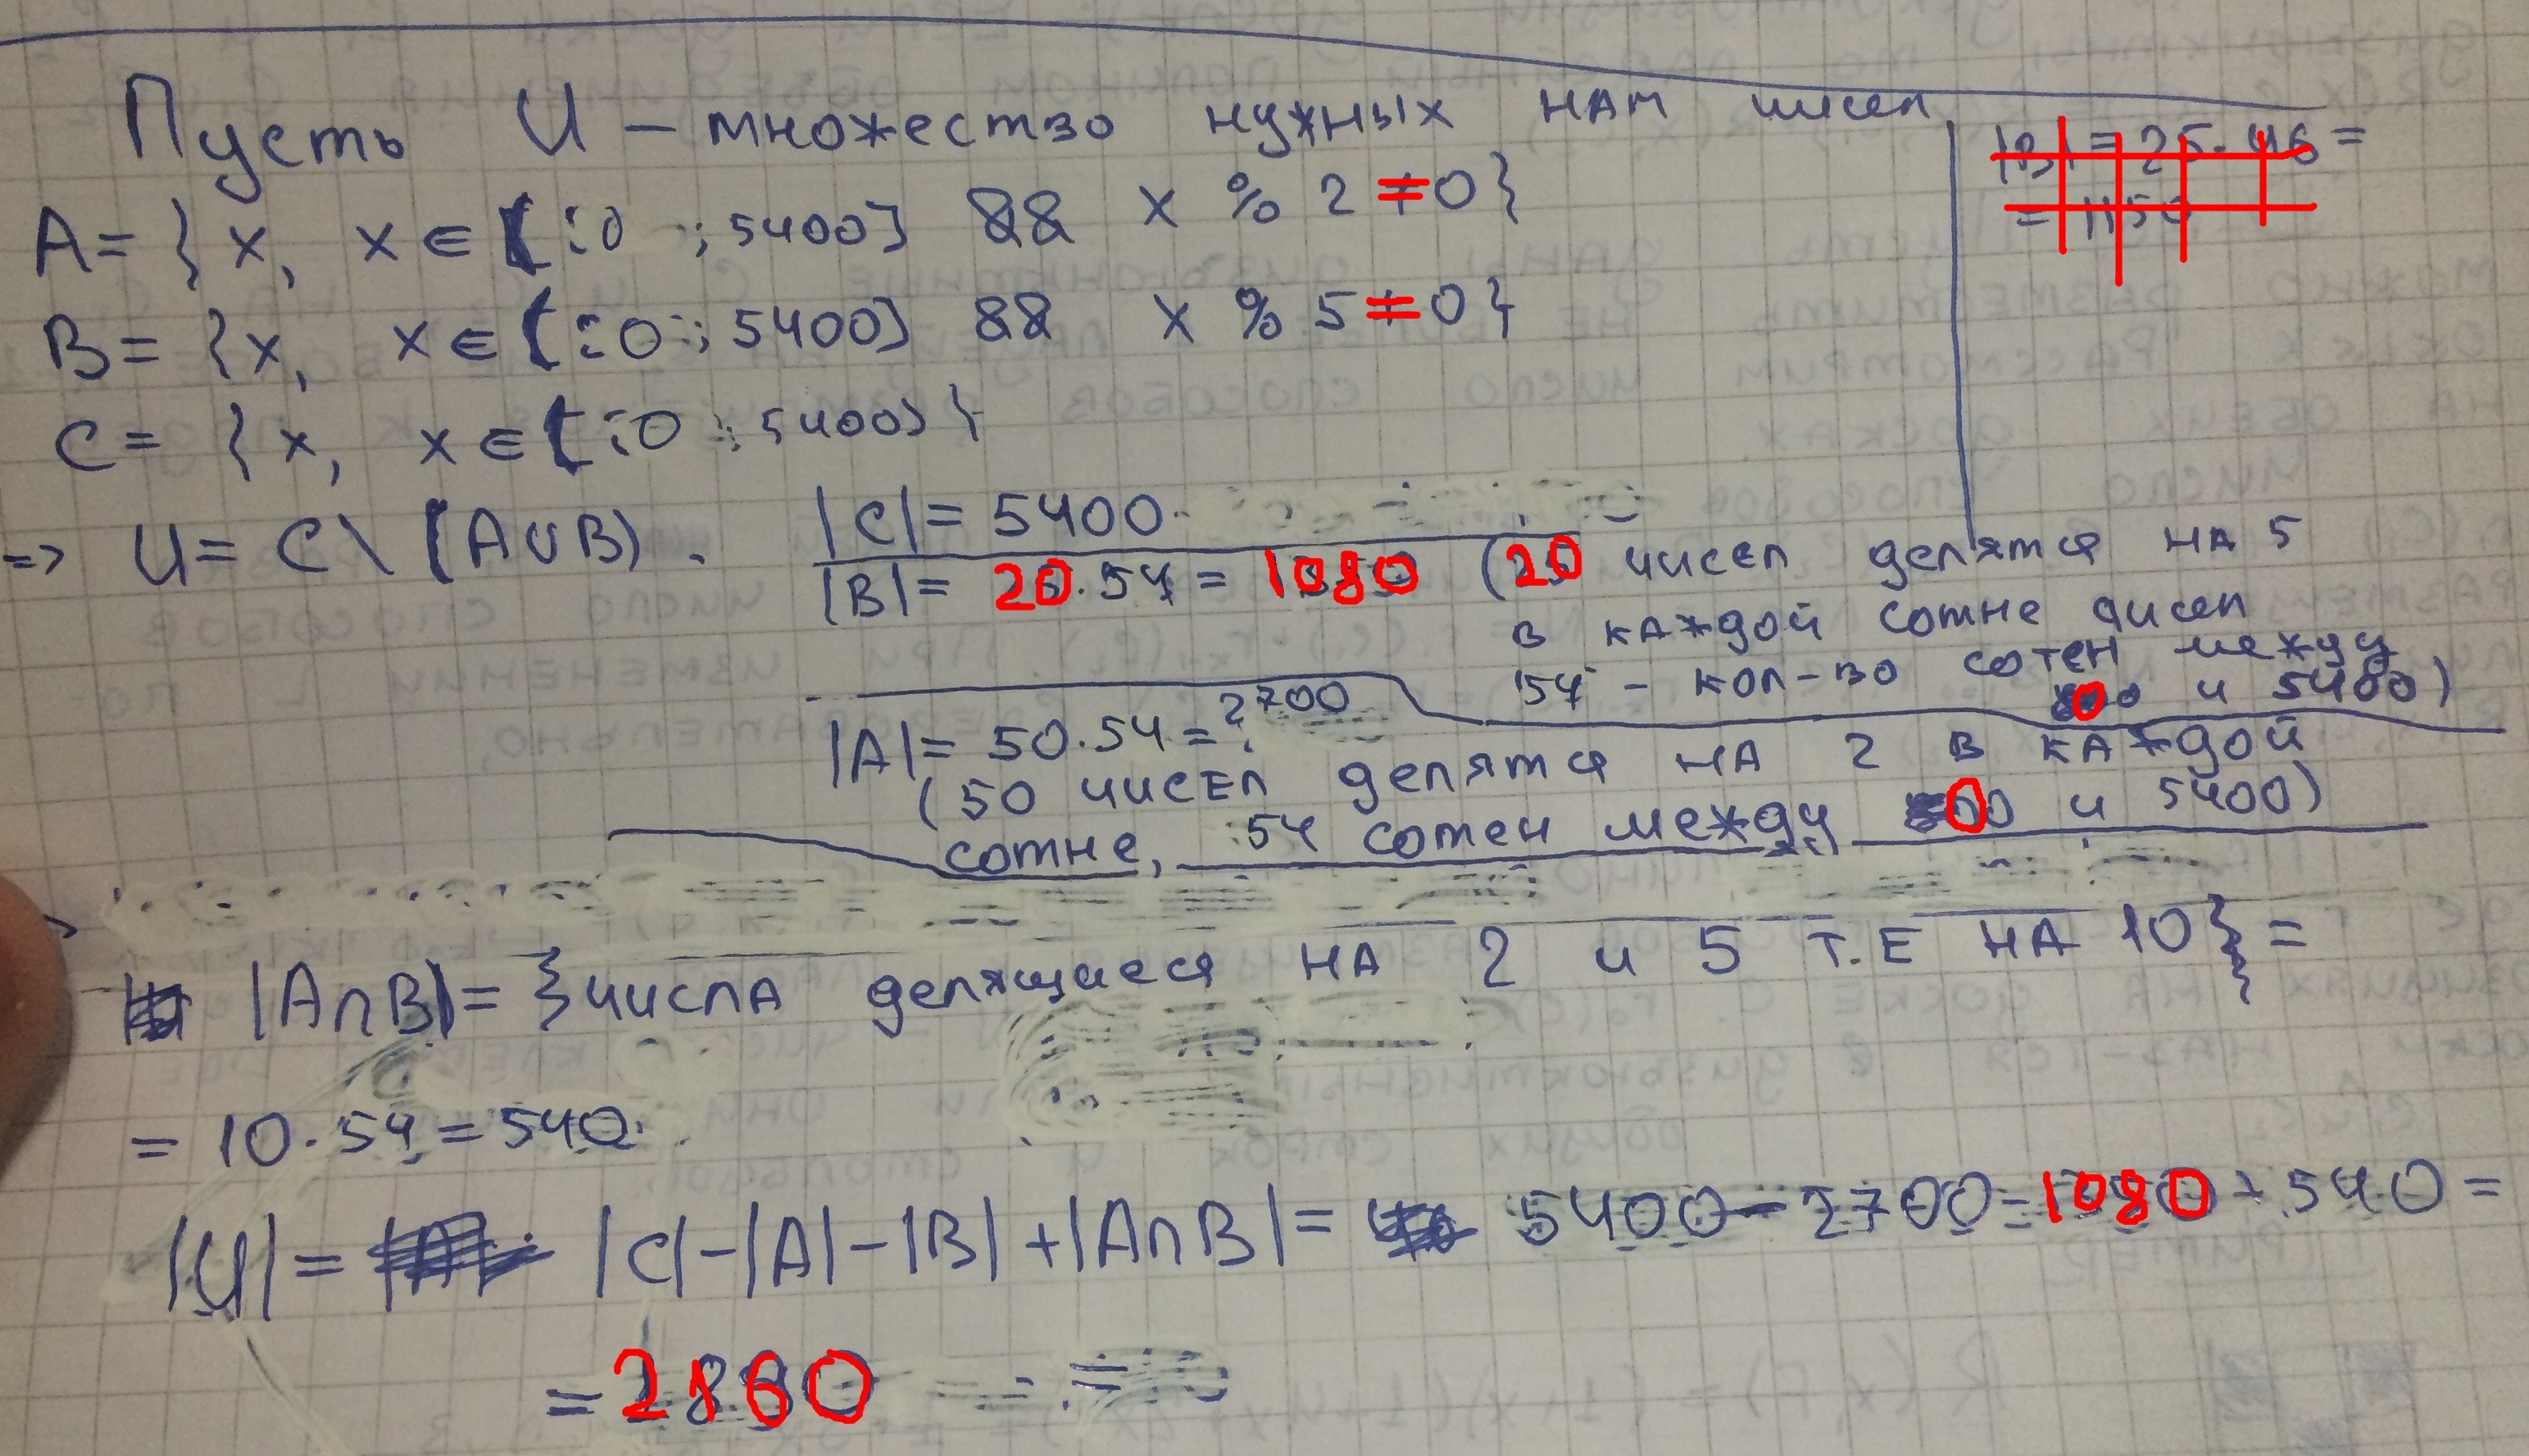 Пусть U – множество нужных нам чисел
A= {x, x ∈ [:0 ; 5400] && x % 2 = 0}
B= {x, x ∈ [:0 ; 5400] && x % 5 = 0}
C= {x, x ∈ [:0 ; 5400]}
|B| = 25·46 =
= 1150
=> U= C \ (A∪B).
|C|= 5400
|B|= 20·54 = 1080 (20 чисел делятся на 5
в каждой сотне чисел
54 – кол-во сотен между
0 и 5400)
|A|= 50·54 = 2700
(50 чисел делятся на 2 в каждой
сотне, 54 сотен между 0 и 5400)
|A∩B|= {числа делящиеся на 2 и 5 т.е на 10} =
= 10·54 = 540
|U|= |C|-|A|-|B|+|A∩B|= 5400-2700-1080+540=
= 2160